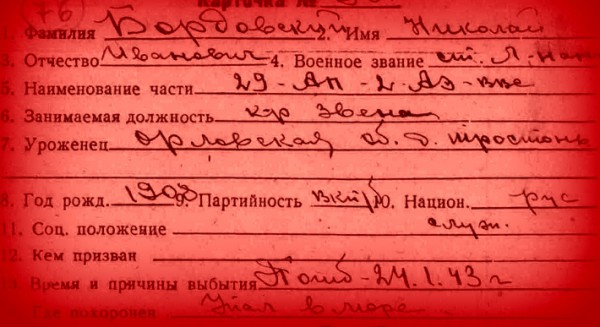 (76) Карточка №
1. Фамилия Бордовский 2. Имя Николай
3. Отчество Иванович 4. Военное звание ст. л-нан
5. Наименование части 29-АП-2-АЭ-ВВС
6. Занимаемая должность к-р звена
7. Уроженец Орловская об. д. Тростонь
8. Год рожд. 1908 9. Партийность вкпб 10. Национ. рус
11. Соц. положение служ.
12. Кем призван
13. Время и причины выбытия Погиб-24.1.43 г
Где похоронен Упал в море